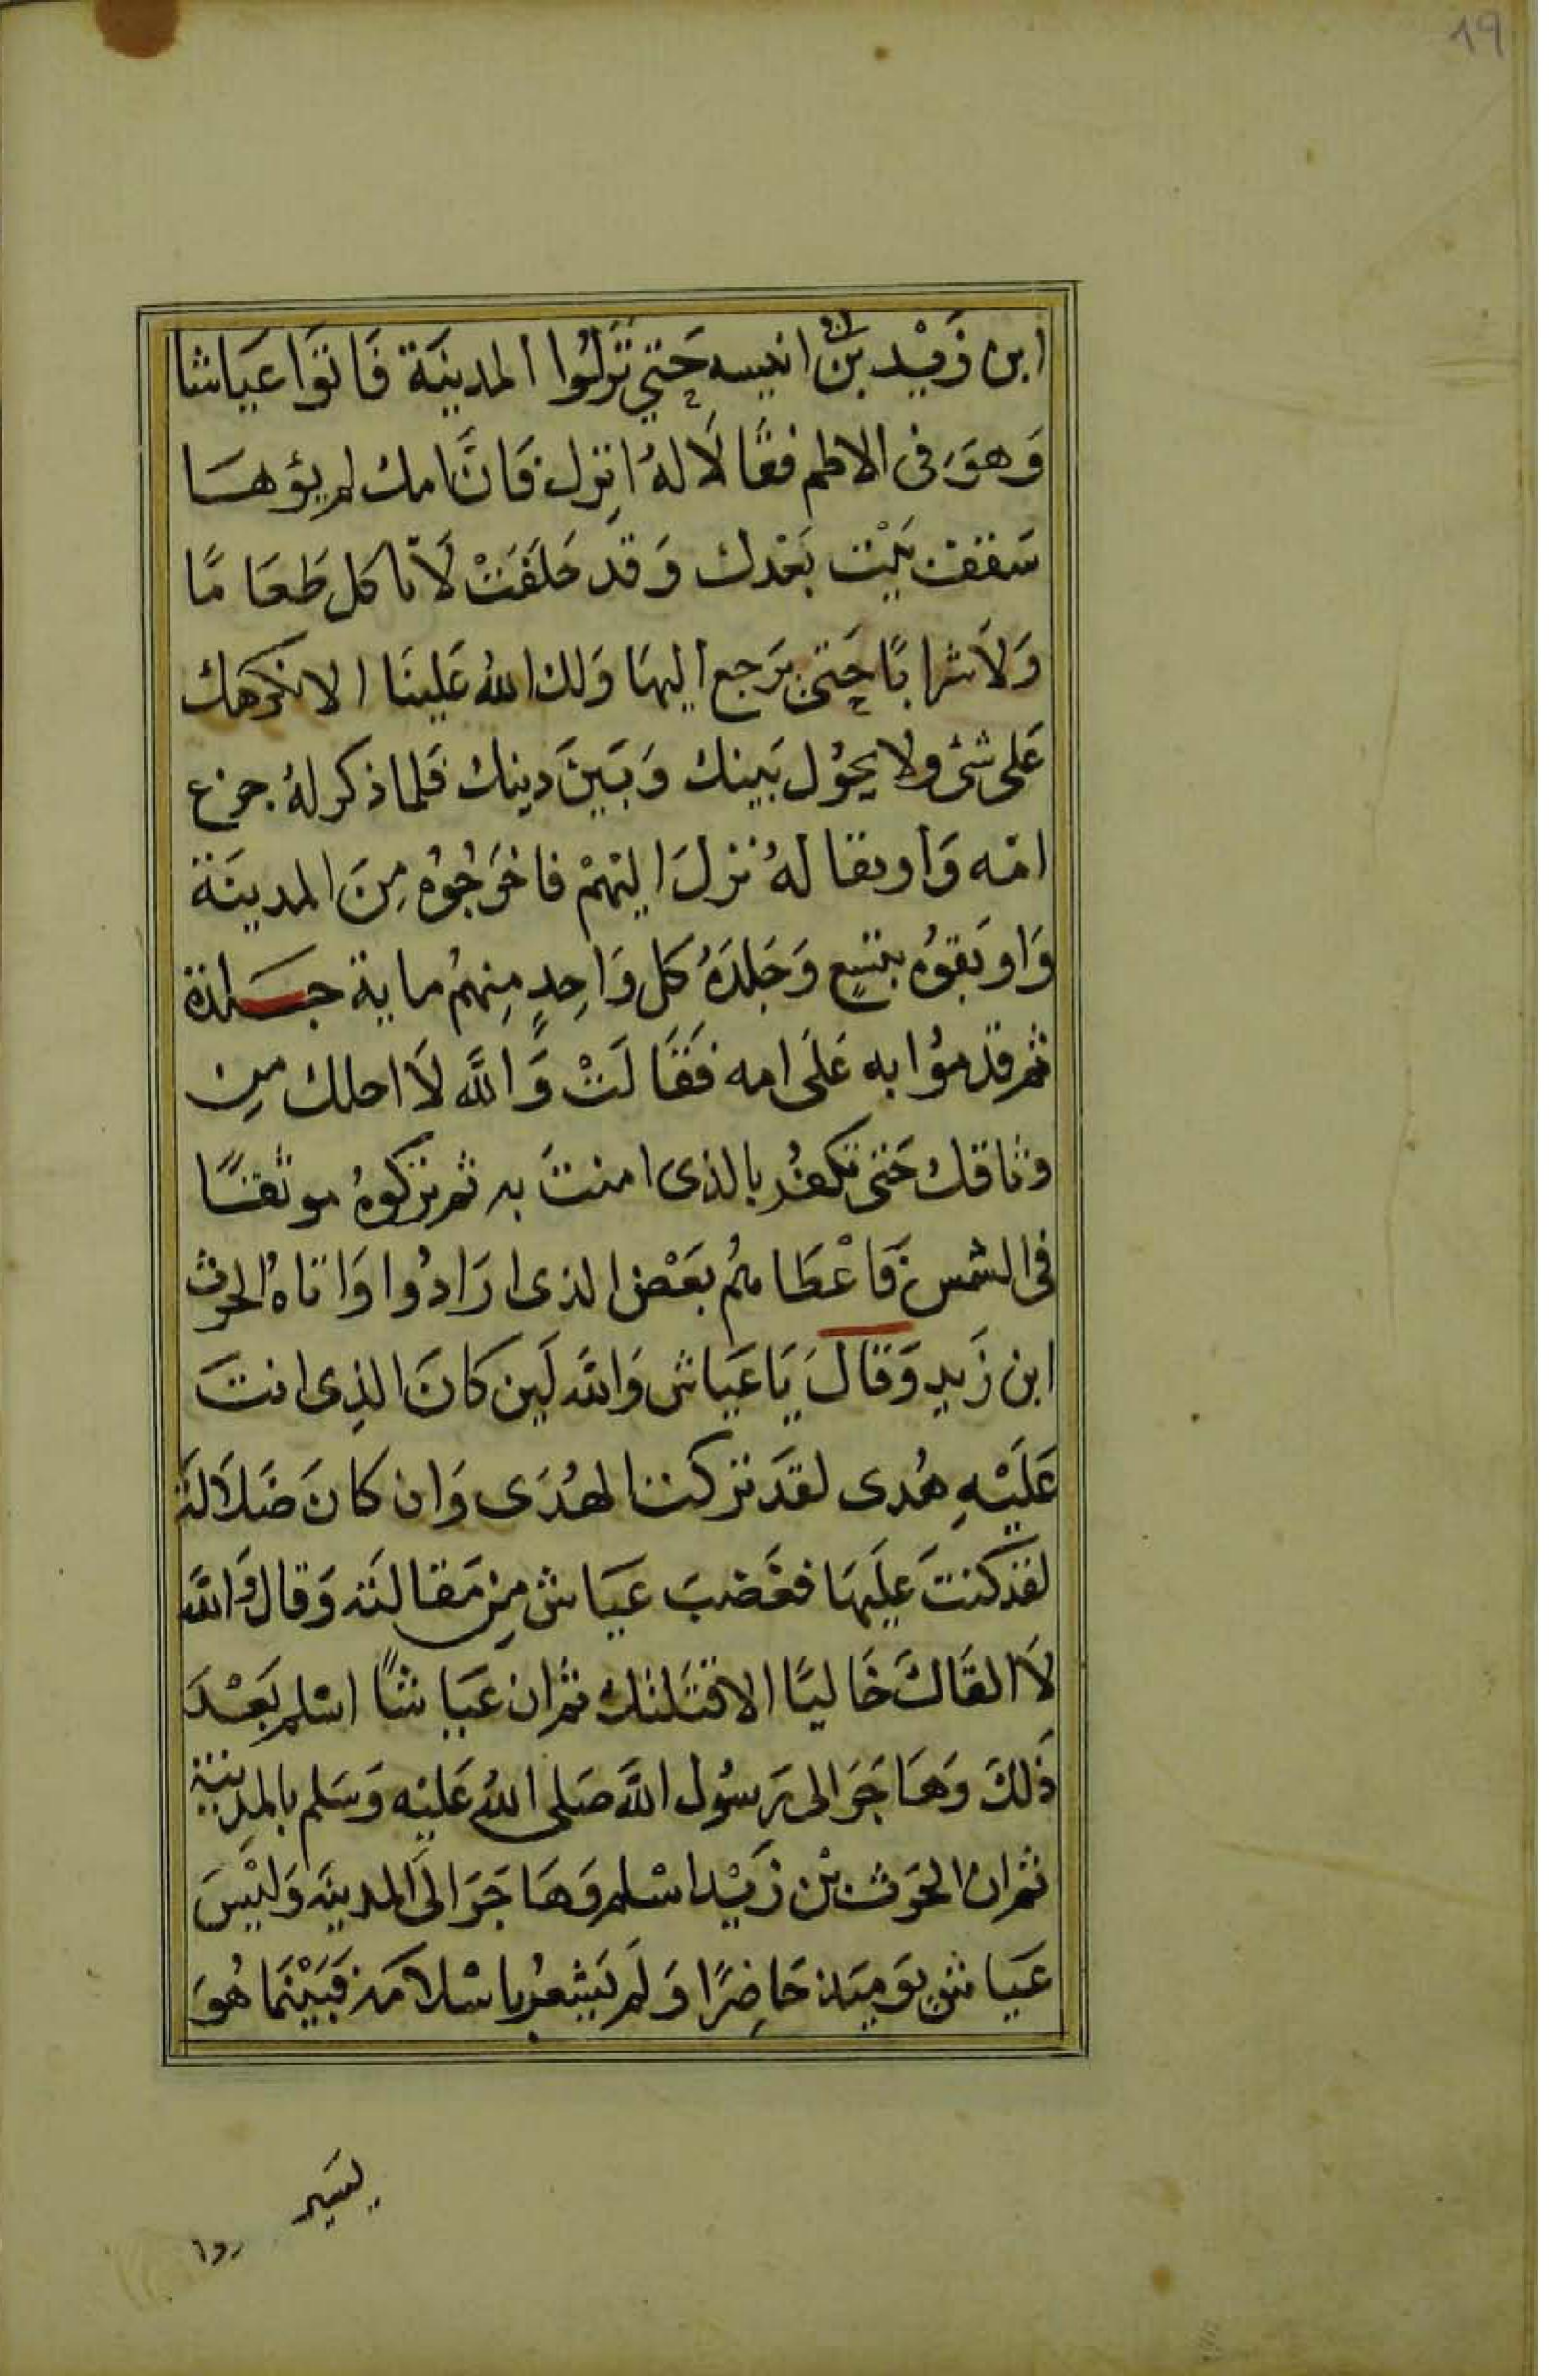 19
ابن زَيْد بن انيسه حَتى نَزلُوا المدينَة فَاتوَا عَيَاشا
وَهوَ فى الاطم فقَالَا لهُ انزِل فَانَّ امك لم يؤهَا
سَقف بَيْت بَعْدك وَقد حَلَفَتْ لَا تاكل طَعَامًا
وَلَا شرابًا حَتى يَرجع اليهَا وَلك اللهُ عَلينَا الا نكرهك
عَلى شئ ولا يحوُل بَينك وَبَينَ دِينك فلما ذكر لهُ جزع
امّه وَاوثقا لهُ نزلَ اليْهمْ فاخرَجُوُه مِنَ المدينَة
وَاوثقوُه بنسْعٍ وَجَلدَهُ كل وَاحِدٍ مِنهمُ ماية جَلدة
ثم قدموُا به عَلَى امه فَقَالَتْ وَاللَّه لَا احلك مِن
وثاقك حَتى تكفُر بالذى امنتَ به ثم تركوهُ موثقًا
فى الشمس فَاعْطَاهُم بعَضْ الذى ارَادُوا وَاتَاهُ الحرث
ابن زَيد وَقَالَ يَا عَيَاش وَاللَّه لَين كَانَ الذِى انتَ
عَلَيْهِ هُدى لقدَ تركت الهُدَى وَان كانَ ضَلَالَة
لقد كنتَ عَليهَا فغَضبَ عَيَاش مِن مَقَالته وَقال وَاللَّه
لَا القَاكَ خَاليًا الا قتَلتك ثم ان عَيَاشًا اسْلم بَعْدَ
ذَلكَ وَهَاجَرَ الى رَسوُل اللَّه صَلى اللهُ عَليْه وَسَلم بالمدِينَة
ثم ان الحرَث بْن زَيْد اسْلم وَهَاجَرَ الَى المدينَة وَليْسَ
عَيَاش يَوميَذ حَاضِرًا وَلَم يَشعُر باسْلامَه فَبَيْنَمَا هُوَ
يسَير